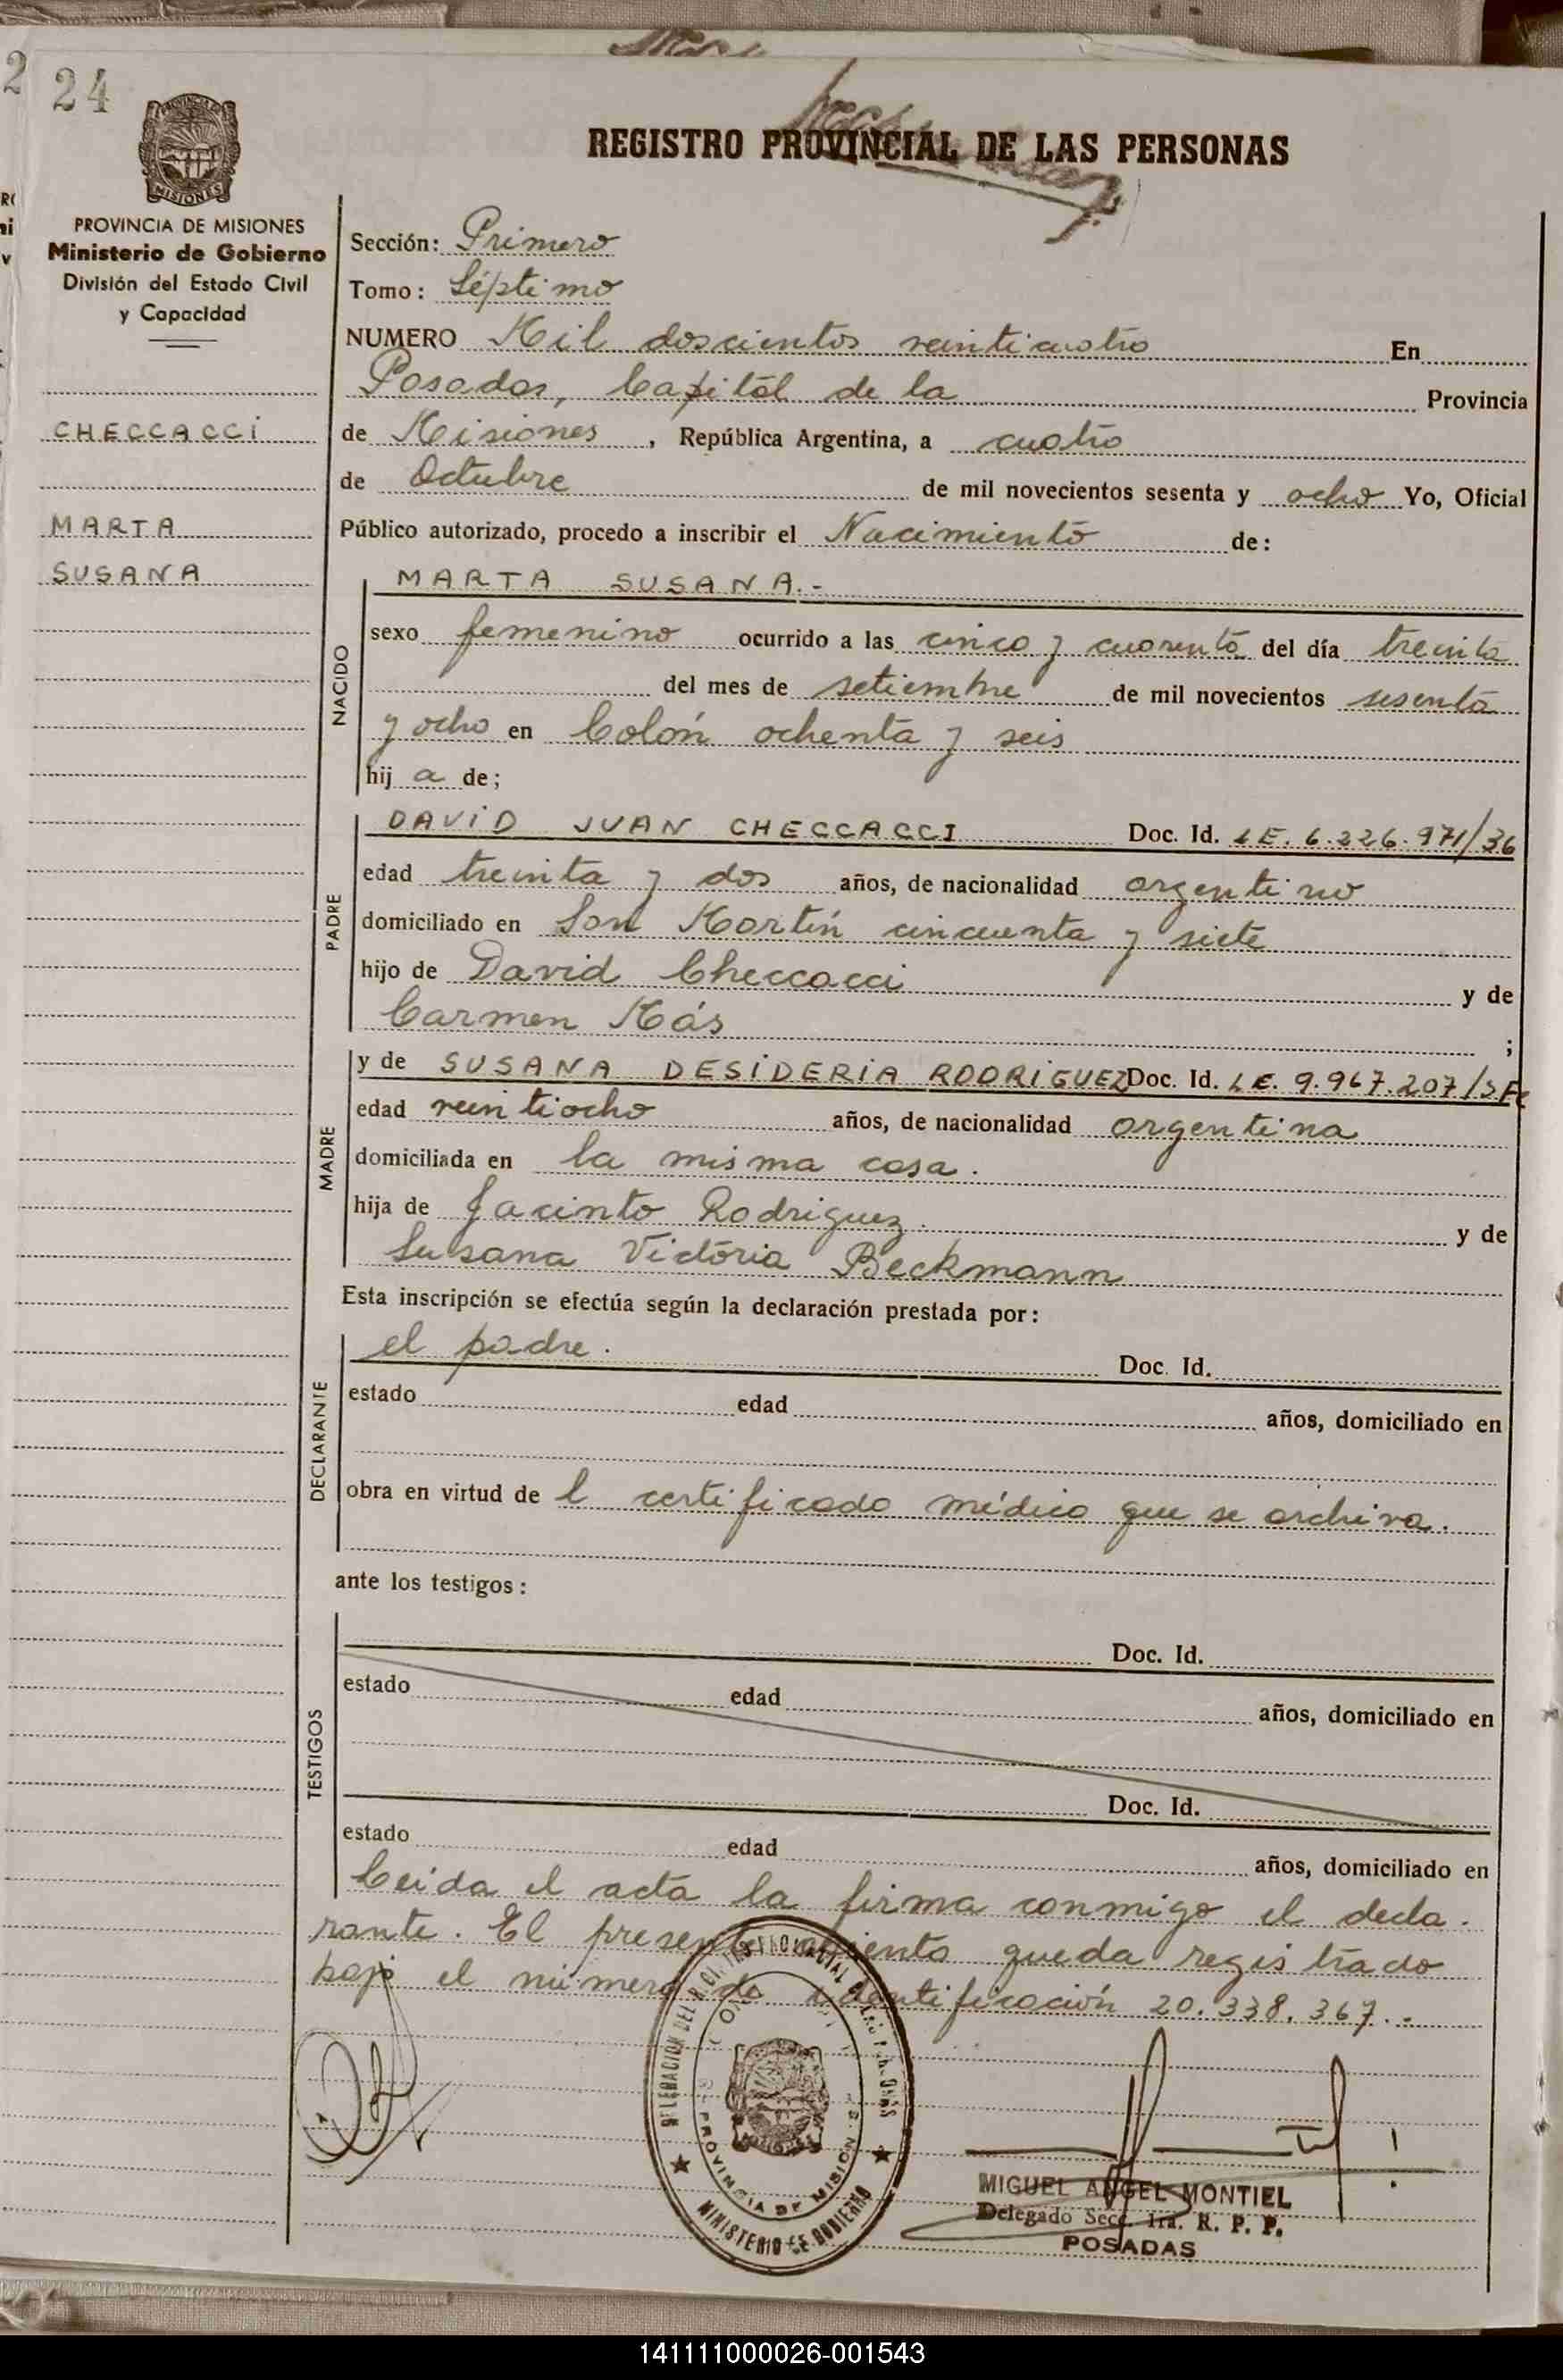 24
REGISTRO PROVINCIAL DE LAS PERSONAS
PROVINCIA DE MISIONES
Ministerio de Gobierno
División del Estado Civil
y Capacidad
CHECCACCI
MARTA
SUSANA
Sección: Primero
Tomo: Séptimo
NUMERO Mil doscientos veinticuatro En
Posadas, Capital de la Provincia
de Misiones, República Argentina, a cuatro
de Octubre de mil novecientos sesenta y ocho Yo, Oficial
Público autorizado, procedo a inscribir el Nacimiento de:
NACIDO
MARTA SUSANA.-
sexo femenino ocurrido a las cinco y cuarenta del día treinta
del mes de setiembre de mil novecientos sesenta
y ocho en Colón ochenta y seis
hij a de;
PADRE
DAVID JUAN CHECCACCI Doc. Id. L.E. 6.226.971/36
edad treinta y dos años, de nacionalidad argentino
domiciliado en San Martín cincuenta y siete
hijo de David Checcacci y de
Carmen Más ;
MADRE
y de SUSANA DESIDERIA RODRIGUEZ Doc. Id. L.E. 9.967.207/S.Fe
edad veintiocho años, de nacionalidad argentina
domiciliada en la misma casa.
hija de Jacinto Rodriguez. y de
Susana Victoria Beckmann
Esta inscripción se efectúa según la declaración prestada por:
DECLARANTE
el padre. Doc. Id.
estado edad años, domiciliado en
obra en virtud de l certificado médico que se archiva.
ante los testigos:
TESTIGOS
Doc. Id.
estado edad años, domiciliado en
Doc. Id.
estado edad años, domiciliado en
Leida el acta la firma conmigo el decla.
rante. El presente asiento queda registrado
bajo el número de identificación 20.338.367..
PROVINCIA DE MISIONES
MINISTERIO DE GOBIERNO
MIGUEL ANGEL MONTIEL
Delegado Secc. 1ra. R. P. P.
POSADAS
141111000026-001543